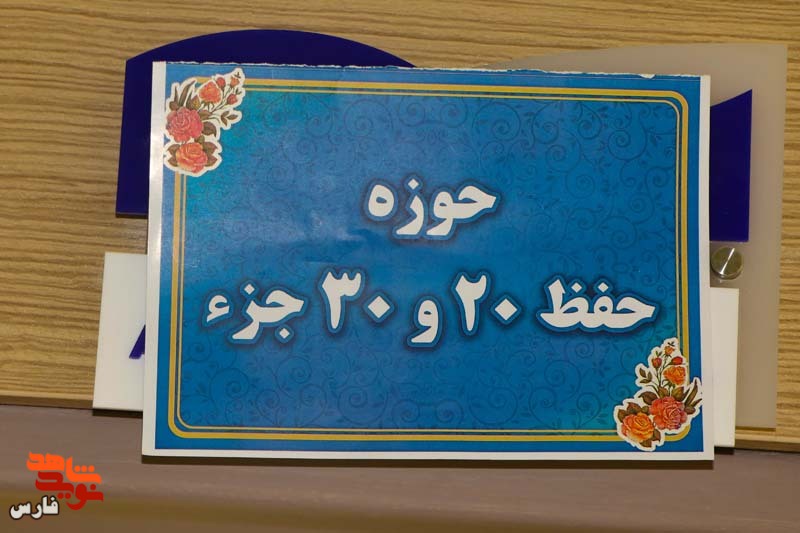 حوزه
حفظ ۲۰ و ۳۰ جزء
نوید شاهد
فارس